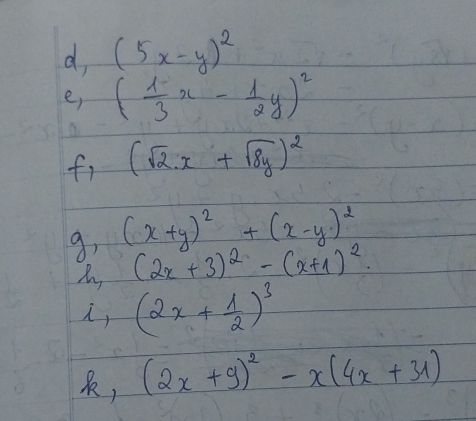 d, (5x - y)²
e, (1/3 x - 1/2 y)²
f, (√2.x + √8y)²
g, (x + y)² + (x - y)²
h, (2x + 3)² - (x + 1)².
i, (2x + 1/2)³
k, (2x + 9)² - x(4x + 31)